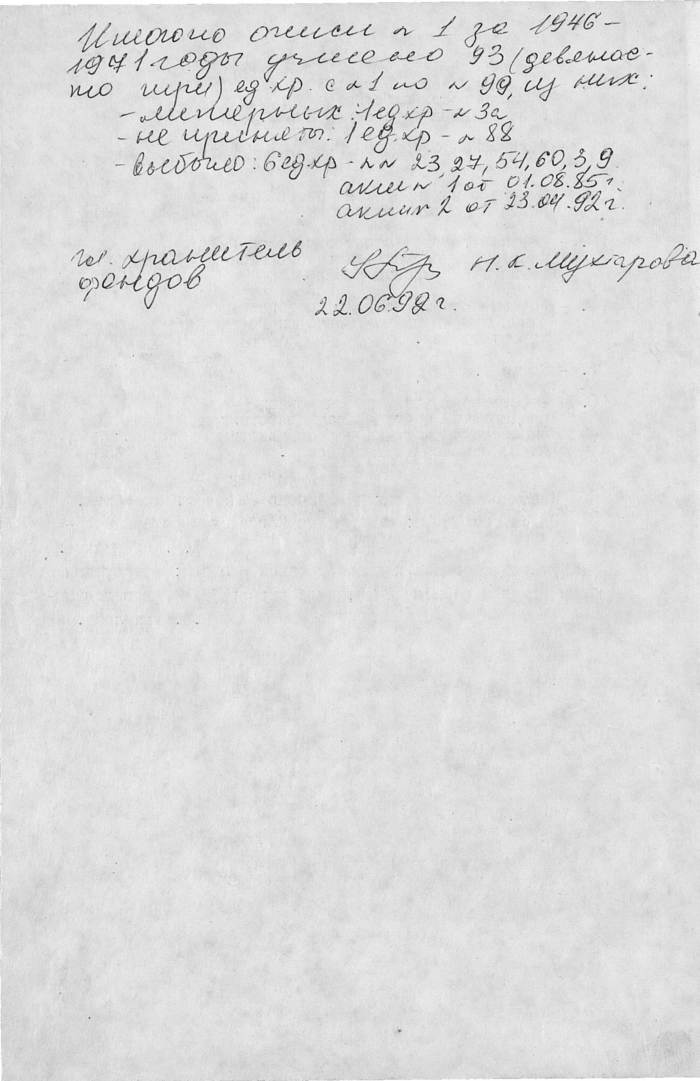 Итого по описи № 1 за 1946-
1971 годы учтено 93 (девянос-
то три) ед. хр. с № 1 по № 99, из них:
- литерных: 1 ед. хр - № 3а
- не приняты: 1 ед. хр - № 88
- выбыло: 6 ед. хр - №№ 23, 27, 54, 60, 3, 9
акт № 1 от 01.08.85г.
акт № 2 от 23.04.92г.
гл. хранитель
фондов
Н. К. Мухтарова
22.06.92г.